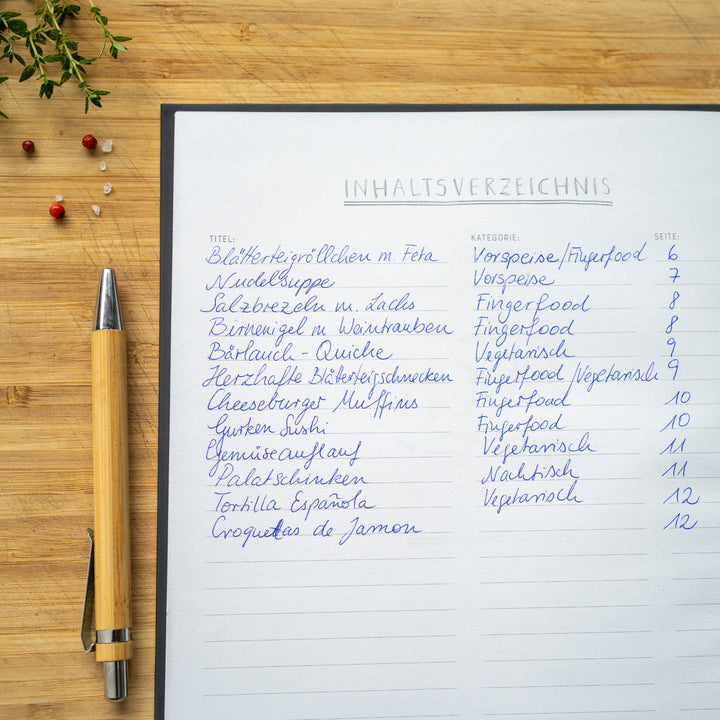 INHALTSVERZEICHNIS
TITEL: KATEGORIE: SEITE:
Blätterteigröllchen m. Feta Vorspeise/Fingerfood 6
Nudelsuppe Vorspeise 7
Salzbrezeln m. Lachs Fingerfood 8
Birnenigel m Weintrauben Fingerfood 8
Bärlauch - Quiche Vegetarisch 9
Herzhafte Blätterteigschnecken Fingerfood/Vegetarisch 9
Cheeseburger Muffins Fingerfood 10
Gurken Sushi Fingerfood 10
Gemüseauflauf Vegetarisch 11
Palatschinken Nachtisch 11
Tortilla Española Vegetarisch 12
Croquettas de Jamon 12